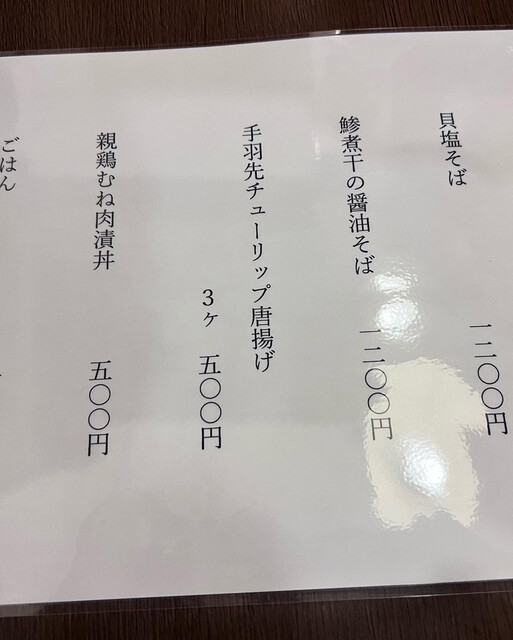 貝塩そば
一二〇〇円
鯵煮干の醤油そば
一二〇〇円
手羽先チューリップ唐揚げ
3ヶ 五〇〇円
親鶏むね肉漬丼
五〇〇円
ごはん